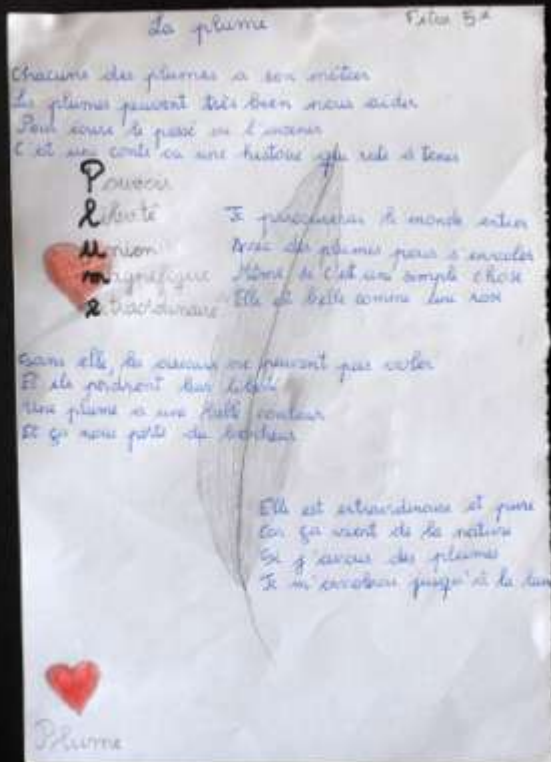 La plume
5e
Chacune des plumes a son métier
Les plumes peuvent très bien nous aider
Pour écrire le passé ou l'avenir
C'est une conte ou une histoire à tenir
Pouvoir
Liberté
Union
Magnéfique
extraordinaire
Je parcourerai le monde entier
Avec des plumes pour s'envoler
Même si c'est une simple chose
Elle est belle comme une rose
Sans elle, les oiseaux ne peuvent pas voler
Et ils perdront leur liberté
Une plume a une belle couleur
Et ça nous porte du bonheur
Elle est extraordinaire et pure
Car ça vient de la nature
Si j'avais des plumes
Je m'envolerai jusqu'à la lune
Plume